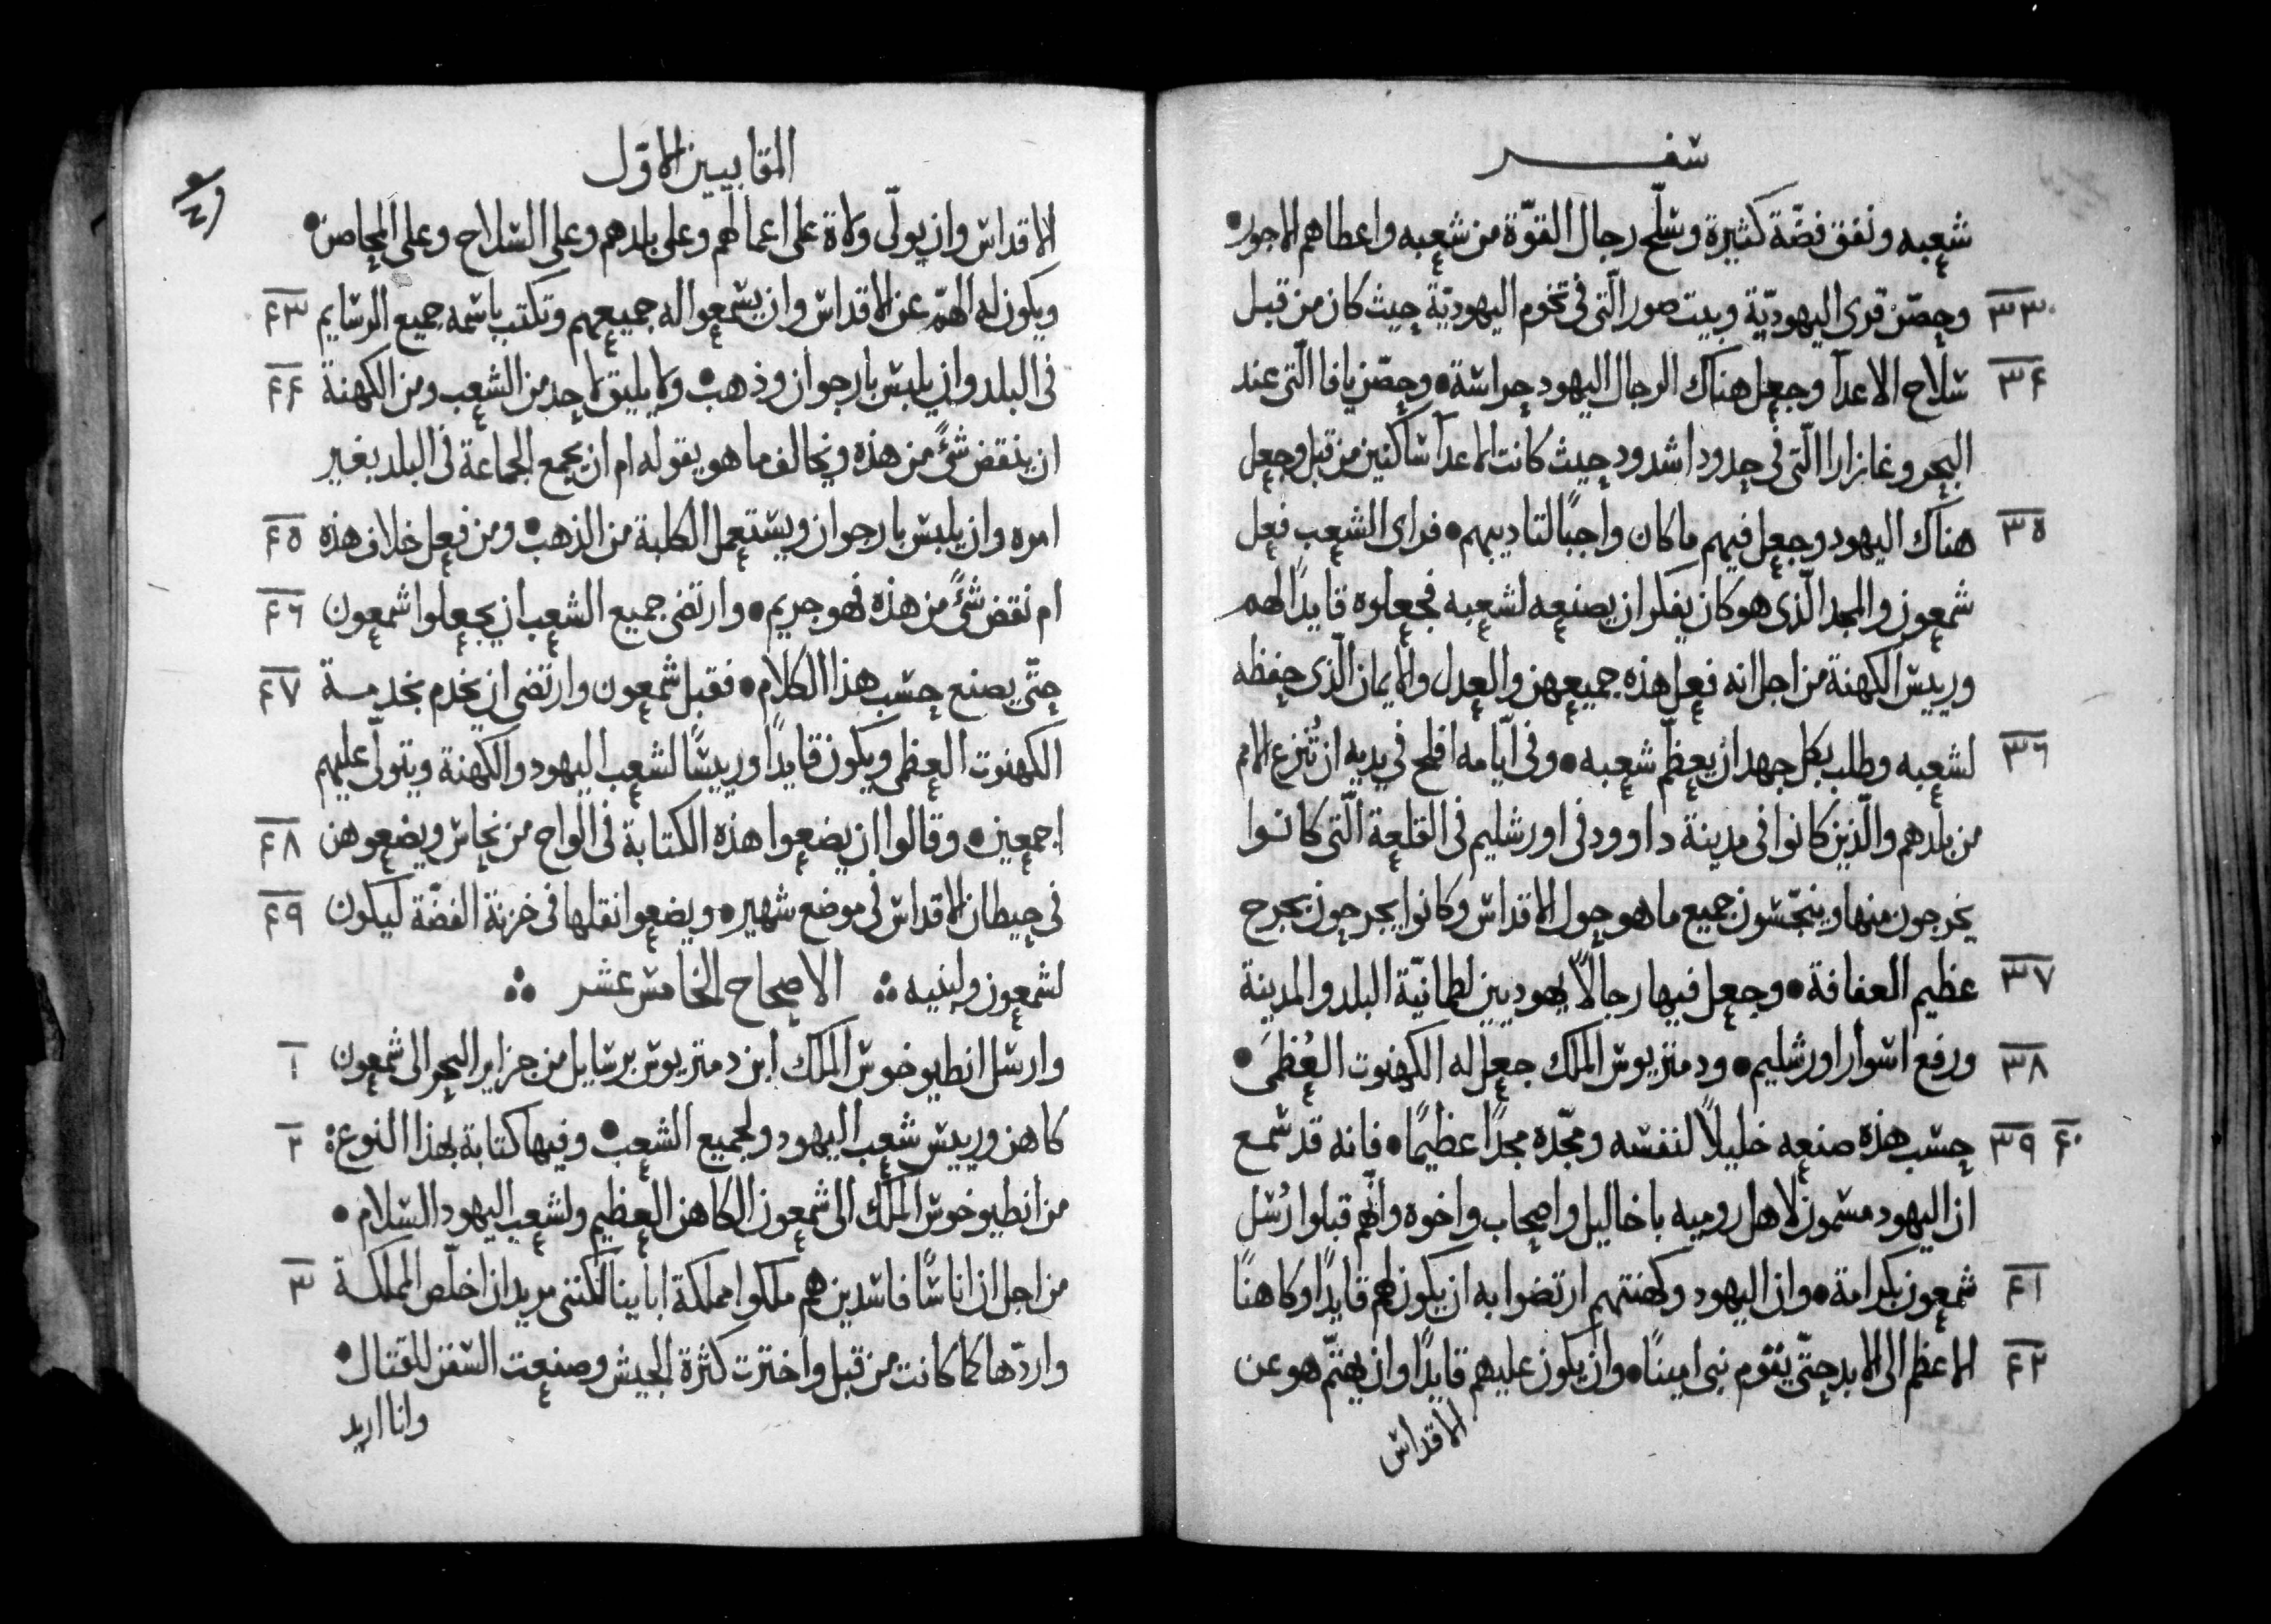 سفر
شعبه ونفق فضّة كثيرة وسلّح رجال القوّة من شعبه واعطاهم الاجور •
٣٣ وحصّن قرى اليهوديّة وبيت صور الّتى فى تخوم اليهوديّة حيث كان من قبل
٣٤ سلاح الاعدآ وجعل هناك الرجال اليهود حراسة • وحصّن يافا الّتى عند
البحر وغازارا الّتى فى حدود اشدود حيث كانت الاعدآ ساكنين من قبل وجعل
٣٥ هناك اليهود وجعل فيهم ما كان واجبًا لتاديبهم • فراى الشعب فعل
شمعون والمجد الّذى هو كان يفكر ان يصنعه لشعبه فجعلوه قايدًا لهم
وريس الكهنة من اجل انه فعل هذه جميعهن والعدل والايمان الّذى حفظه
٣٦ لشعبه وطلب بكل جهد ان يعظّم شعبه • وفى ايّامه افلح فى يديه ان تُنزع الامم
من بلدهم والّذين كانوا فى مدينة داوود فى اورشليم فى القلعة الّتى كانوا
يخرجون منها وينجّسون جميع ما هو حول الاقداس وكانوا يجرحون بجرح
٣٧ عظيم العفافة • وجعل فيها رجالاً يهوديين لطمانيّة البلد والمدينة
٣٨ ورفع اسوار اورشليم • ودمتريوس الملك جعل له الكهنوت العُظمَى •
٣٩ ٤٠ حسب هذه صنعه خليلاً لنفسه ومجّده مجدًا عظيمًا • فانه قد سمع
ان اليهود مسمون لاهل روميه باخاليل واصحاب واخوه وانّهم قبلوا رُسُل
٤١ شمعون بكرامة • وان اليهود وكهنتهم ارتضوا به ان يكون لهم قايدًا وكاهنًا
٤٢ الاعظم الى الابد حتّى يقوم نبى امينًا • وان يكون عليهم قايدًا وان يهتمّ هو عن
الاقداس
المقابيين الاوّل
الاقداس وان يولّى ولاة على اعمالهم وعلى بلدهم وعلى السلاح وعلى المحاصن •
٤٣ ويكون له الهمّ عن الاقداس وان يسمعوا له جميعهم وتكتب باسمه جميع الرسايم
٤٤ فى البلد وان يلبس بارجوان وذهب • ولا يليق لاحد من الشعب ومن الكهنة
ان ينقض شئً من هذه ويخالف ما هو يقوله ام ان يجمع الجماعة فى البلد بغير
٤٥ امره وان يلبس بارجوان ويستعمل الكلبة من الذهب • ومن فعل خلاف هذه
٤٦ ام نقض شئً من هذه فهو جريم • وارتضى جميع الشعب ان يجعلوا شمعون
٤٧ حتّى يصنع حسب هذا الكلام • فقبل شمعون وارتضى ان يخدم بخدمة
الكهنوت العظمى ويكون قايدًا وريسًا لشعب اليهود والكهنة ويتولّى عليهم
٤٨ اجمعين • وقالوا ان يضعوا هذه الكتابة فى الواح من نحاس ويضعوهن
٤٩ فى حيطان الاقداس فى موضع شهير • ويضعوا نقلها فى خزنة الفضّة ليكون
لشمعون ولبنيه ∴ الاصحاح الخامس عشر ∴
١ وارسل انطيوخوس الملك ابن دمتريوس برسايل من جزاير البحر الى شمعون
٢ كاهن وريس شعب اليهود ولجميع الشعب • وفيها كتابة بهذا النوع
من انطيوخوس الملك الى شمعون الكاهن العظيم ولشعب اليهود السلام •
٣ من اجل ان اناسًا فاسدين هم ملكوا مملكة ابآينا لكننى مريد ان اخلّص المملكة
واردّها كما كانت من قبل واخترت كثرة الجيش وصنعت السفن للقتال •
وانا اريد